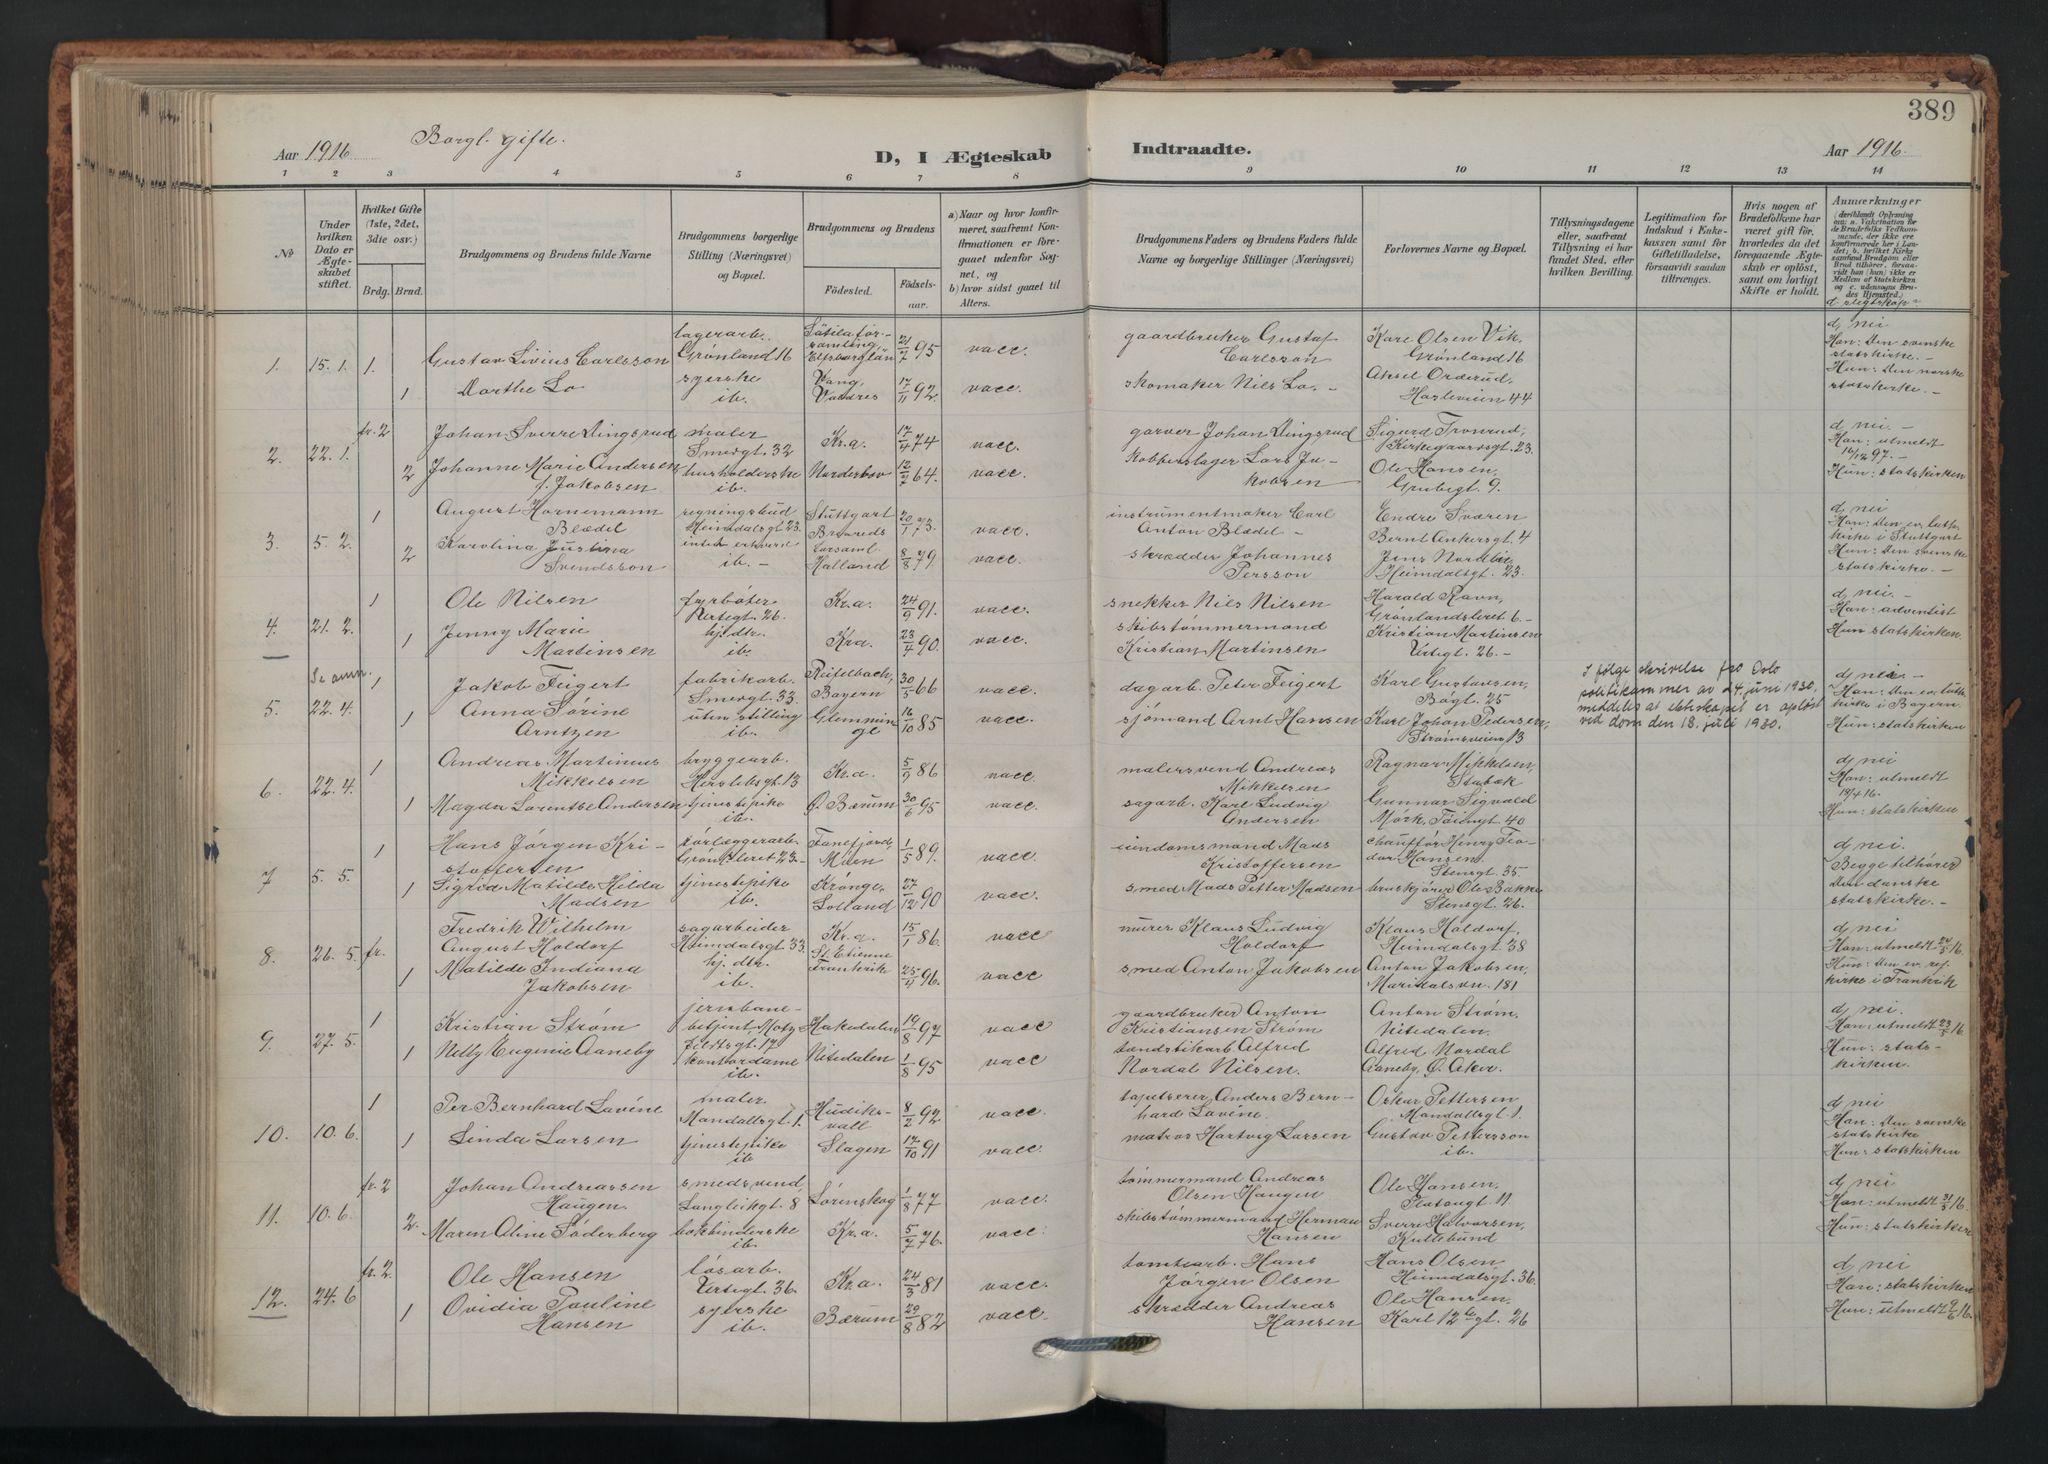 389
Aar 1916 Borgl. gifte.
D, I Ægteskab Indtraadte.
Aar 1916.
1 2 3 4 5 6 7 8 9 10 11 12 13 14
No
Under hvilken Dato er Ægteskabet stiftet.
Hvilket Gifte (1ste, 2det, 3die osv.)
Brdg. Brud.
Brudgommens og Brudens fulde Navne
Brudgommens borgerlige Stilling (Næringsvei) og Bopæl.
Brudgommens og Brudens
Fødested. Fødselsaar.
a) Naar og hvor konfirmeret, saafremt Konfirmationen er foregaaet udenfor Sognet, og
b) hvor sidst gaaet til Alters.
Brudgommens Faders og Brudens Faders fulde Navne og borgerlige Stillinger (Næringsvei)
Forlovernes Navne og Bopæl.
Tillysningsdagene eller, saafremt Tillysning ei har fundet Sted, efter hvilken Bevilling.
Legitimation for Indskud i Enkekassen samt for Giftetilladelse, forsaavidt saadan tiltrænges.
Hvis nogen af Brudefolkene har været gift før, hvorledes da det foregaaende Ægteskab er opløst, samt om lovligt Skifte er holdt.
Anmærkninger
d. slegtskap
1. 15.1. 1. Gustav Livius Carlsson lagerarb. Grønland 16 21/7 95 vacc. gaardbruker Gustaf Carlsson Kare Olsen Vik Grønland 16 d, nei Han: Den svenske statskirke.-
1 Dorthe Lo syerske ib. Vang, Valdres 17/11 92. vacc. skomaker Nils Lo.- Aksel Orderud, Hasleveien 44 Hun: Den norske statskirke.-
2. 22.1. fr. 2 Johan Sverre Dingsrud maler Smergt. 32 Kr.a. 17/4 74 vacc. garver Johan Dingsrud Sigurd Tronrud, Kirkegaardsgt. 23. d, nei.- Han: utmeldt 16/12 97.-
2 Johanne Marie Andersen f. Jakobsen husholderske ib. Narderhov 12/7 64. vacc. kobberslager Lars Jakobsen Ole Hansen, Grubegt. 9. Hun: statskirken
3. 5.2. 1 August Hornemann Blædel regningsbud Heimdalsgt. 23. Stuttgart 20/1 73. vacc. instrumentmaker Carl Anton Blædel - Endre Sværen Bernt Ankersgt. 4 d, nei Han: Den ev. luth. kirke i Stuttgart
2 Karolina Justina Svendsson ib.- Halland 8/8 79. vacc. skrædder Johannes Persson Jens Nordlie, Heimdalsgt. 23. Hun: Den svenske statskirke.-
4. 21.2. 1 Ole Nilsen fyrbøter Vertsgt. 26. Kr.a. 24/9 91. vacc. snekker Nils Nilsen Harald Ravn, Grønlandsleret 6.- d, nei.- Han: adventist
1 Jenny Marie Martinsen hj. dtr. ib. Kr.a. 23/4 90. vacc. skibstømmermand Kristian Martinsen Kristian Martinsen Vertsgt. 26.- Hun statskirken.
Se anm.
5. 22.4. 1 Jakob Feigert fabrikarb. Smergt. 33. Reifelbach, Bayern 30/5 66 vacc. dagarb. Peter Feigert Karl Gustavsen, Bøgt. 25 d, nei.- Han: Den ev. luth. kirke i Bayern.
1 Anna Sørine Arntzen uten stilling ib. Glemminge 16/10 85 vacc. sjømand Arnt Hansen Karl Johan Pedersen, Strømsveien 13 Hun: statskirken
I følge skrivelse fra Oslo politikammer av 24. juni 1930, meddeles at ekteskapet er opløst ved dom den 18. juli 1930.
6. 22.4. 1 Andreas Martinius Mikkelsen bryggearb. Herslebsgt. 13 Kr.a. 5/9 86 vacc. malersvend Andreas Mikkelsen Ragnar Mikkelsen, Stabæk d, nei Han: utmeldt 18/4 16.
1 Magda Lorentse Andersen tjenestepike ib. Ø. Bærum 30/6 95 vacc. sagarb. Karl Ludvig Andersen Gunnar Sigvald Mørk, Tøiengt. 40 Hun: statskirken
7 5.5. 1 Hans Jørgen Kristoffersen rørlæggerarb. Grønl.leret 23.- Fanefjord, Møen 1/5 89. vacc. eiendomsmand Mads Kristoffersen chauffør Henry Teodor Hansen, Stensgt. 35 d, nei. Begge tilhører Den danske statskirke.-
1 Sigrid Matilde Hilda Madsen tjenestepike ib. Krønge, Lolland 27/12 90 vacc. smed Mads Petter Madsen bruskjører Ole Bakke Stensgt. 26.
8. 26.5. fr. Fredrik Wilhelm August Holdorf sagarbeider Heimdalsgt. 33. Kr.a. 15/1 86. vacc. murer Klaus Ludvig Holdorf Klaus Holdorf, Heimdalsgt. 38 d, nei Han: utmeldt 24/5 16.
1 Matilde Indiana Jakobsen hj. dtr. ib. St. Etienne Frankrike 25/4 96. vacc. smed Anton Jakobsen Anton Jakobsen, Maridalsvn. 181 Hun: Den ev. ref. kirke i Frankrik
9. 27.5. 1 Kristian Strøm jernbanebetjent, Motzfeldtsgt. 17 Hakedalen 19/8 97 vacc gaardbruker Anton Kristiansen Strøm Anton Strøm, Nitedalen. d, nei. Han: utmeldt 23/5 16.
1 Nelly Eugenie Aaneby kontordame ib. Nitedalen 1/8 95 vacc. tændstikarb. Alfred Nordal Nilsen. Alfred Nordal Aaneby, Ø. Aker. Hun: statskirken.
10. 10.6. 1 Per Bernhard Lavéne maler Mandallsgt. 1. Hudiksvall 8/2 92 vacc. tapetserer Anders Bernhard Lavéne. Oskar Pettersen Mandallsgt. 1. d, nei Han: Den svenske statskirke
1 Linda Larsen tjenestepike ib Slagen 17/10 91 vacc. matros Hartvig Larsen Gustav Pettersson ib. Hun: statskirken
11. 10.6. fr. 2 Johan Andreassen Haugen smedsvend, Langleikgt. 8 Lørenskog 1/8 77 vacc. tømmermand Andreas Olsen Haugen Ole Hansen, Platousgt. 11 d, nei Han: utmeldt 31/5 16.
2. Maren Oline Söderberg bokbinderske ib. Kr.a. 5/7 76. vacc. skibstømmermand Herman Hansen Sverre Halvorsen, Kullebund Hun: statskirken
12. 24.6 fr. 2. Ole Hansen løsarb. Vertsgt. 36. Kr.a. 24/3 81 vacc. tomtearb. Hans Jørgen Olsen Hans Olsen, Heimdalsgt. 36. d, nei Han: statskirken
1 Ovidia Pauline Hansen syerske ib. Bærum 29/8 82 vacc. skrædder Andreas Hansen Ole Hansen, Karl 12tes gt. 26 Hun: utmeldt 9/6 16.